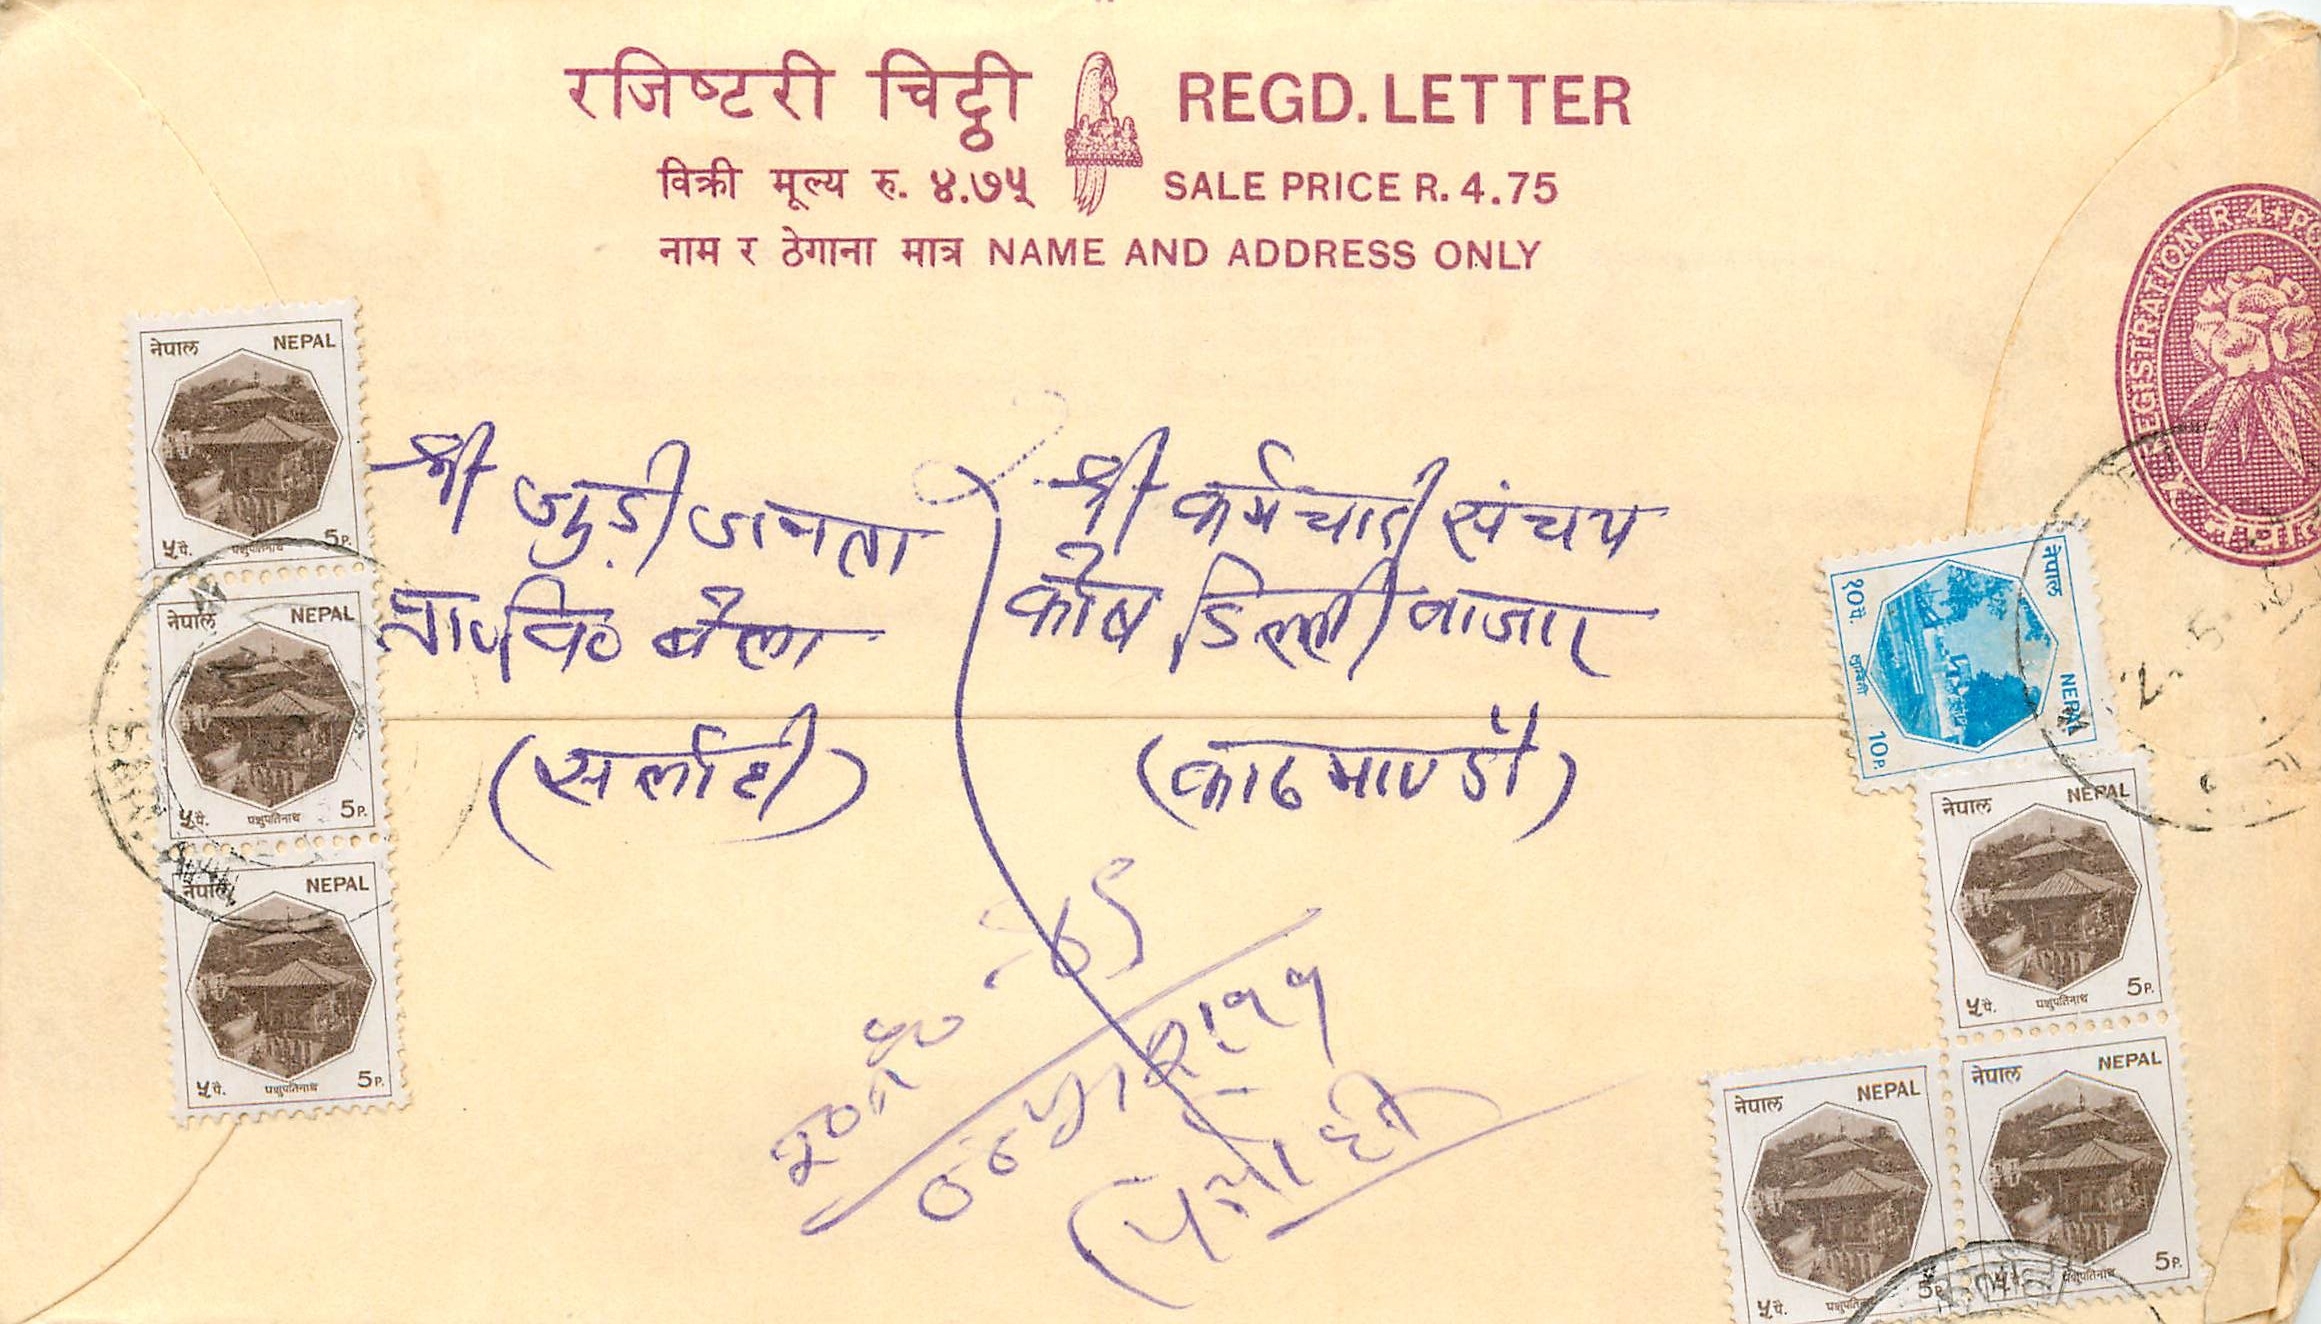 रजिष्टरी चिट्ठी REGD. LETTER
विक्री मूल्य रु. ४.७५ SALE PRICE R. 4.75
नाम र ठेगाना मात्र NAME AND ADDRESS ONLY
REGISTRATION R 4+PO
नेपाल
नेपाल NEPAL
५पै. पशुपतिनाथ 5P.
नेपाल NEPAL
५पै. पशुपतिनाथ 5P.
नेपाल NEPAL
५पै. पशुपतिनाथ 5P.
श्री जुडी जनता
मा वि० बेला
(सर्लाही)
श्री कर्मचारी संचय
कोष डिल्ली बाजार
(काठमाण्डौ)
नेपाल NEPAL
१०पै. 10P.
नेपाल NEPAL
५पै. पशुपतिनाथ 5P.
नेपाल NEPAL
५पै. पशुपतिनाथ 5P.
नेपाल NEPAL
५पै. पशुपतिनाथ 5P.